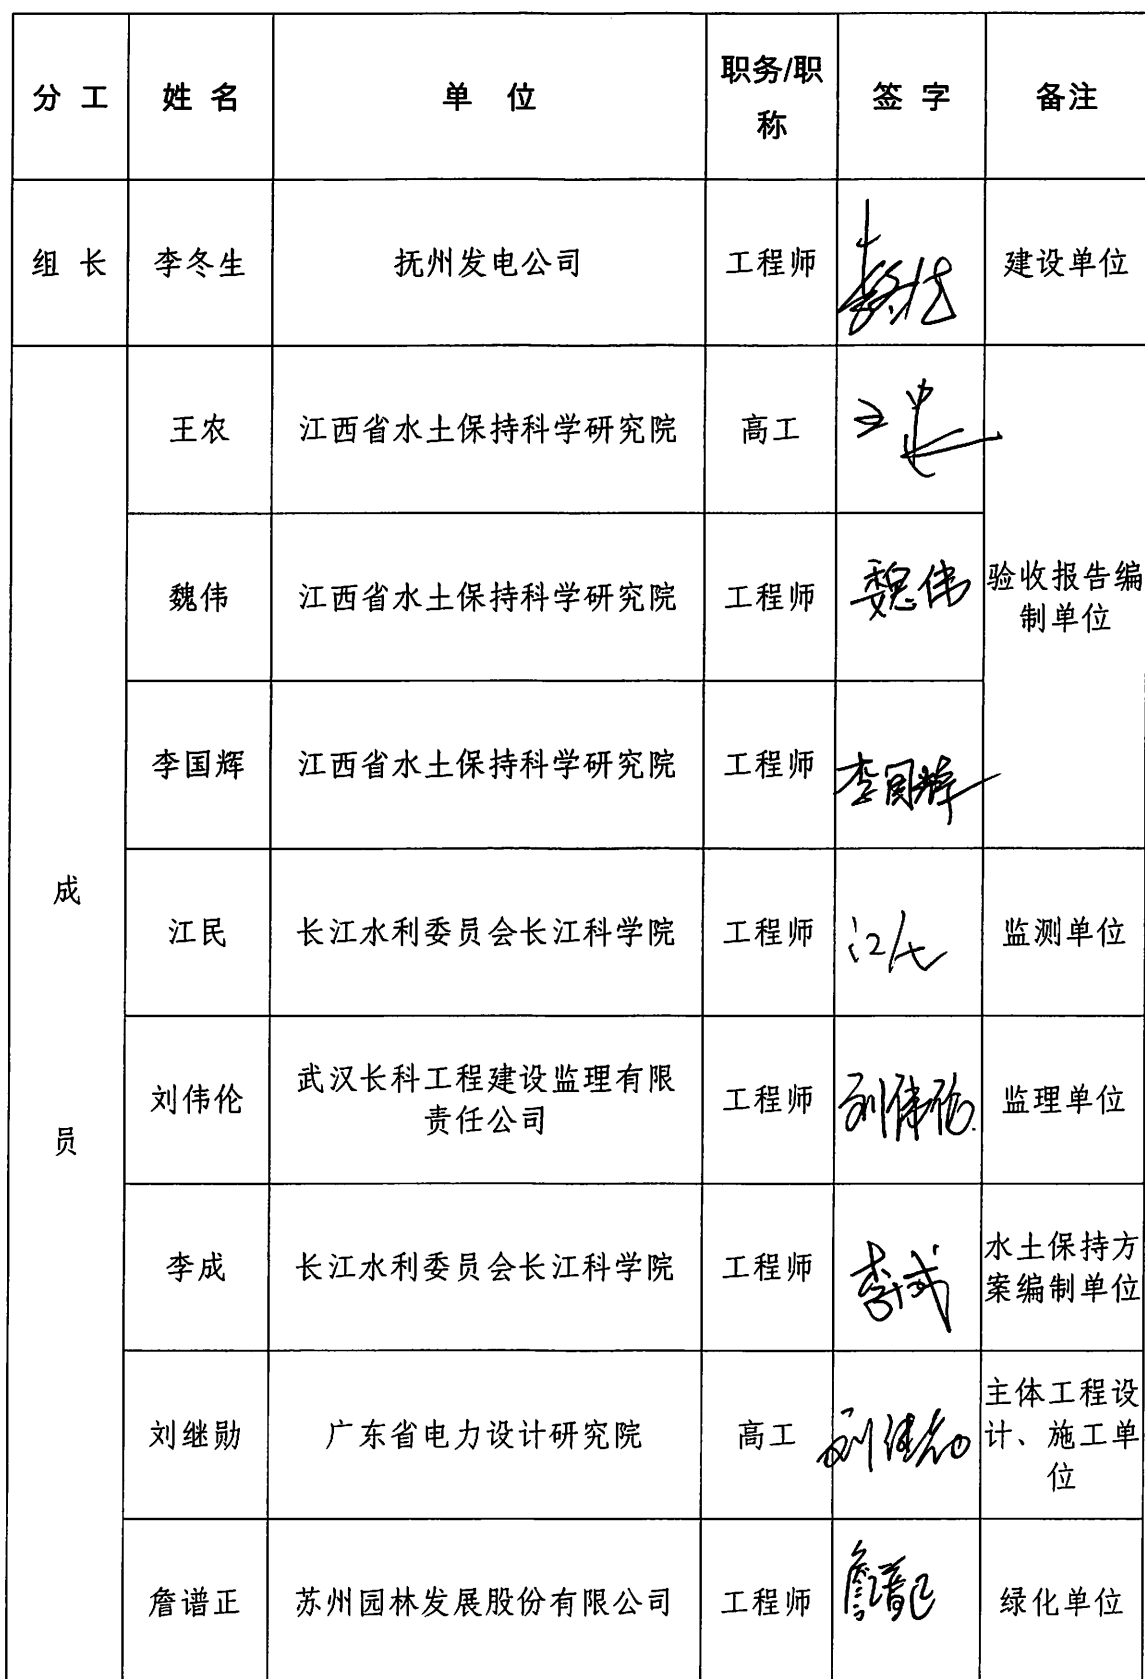 分 工 姓 名 单 位 职务/职称 签 字 备注
组 长 李冬生 抚州发电公司 工程师 建设单位
成员
王农 江西省水土保持科学研究院 高工
魏伟 江西省水土保持科学研究院 工程师 魏伟
验收报告编
制单位
李国辉 江西省水土保持科学研究院 工程师 李国辉
江民 长江水利委员会长江科学院 工程师 江民 监测单位
刘伟伦 武汉长科工程建设监理有限
责任公司
工程师 刘伟伦 监理单位
李成 长江水利委员会长江科学院 工程师 李成
水土保持方
案编制单位
刘继勋 广东省电力设计研究院 高工 刘继勋
主体工程设
计、施工单
位
詹谱正 苏州园林发展股份有限公司 工程师 詹谱正 绿化单位